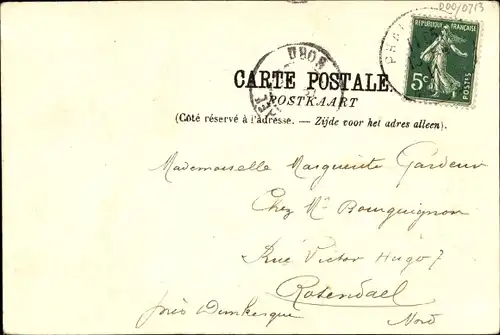 D00/0713
REPUBLIQUE FRANÇAISE
5c POSTES
PHAL
CARTE POSTALE.
POSTKAART
(Côté réservé à l'adresse. — Zijde voor het adres alleen).
Mademoiselle Marguerite Gardeur
Chez Mr Bourguignon
Rue Victor Hugo 7
Rosendael
près Dunkerque Nord